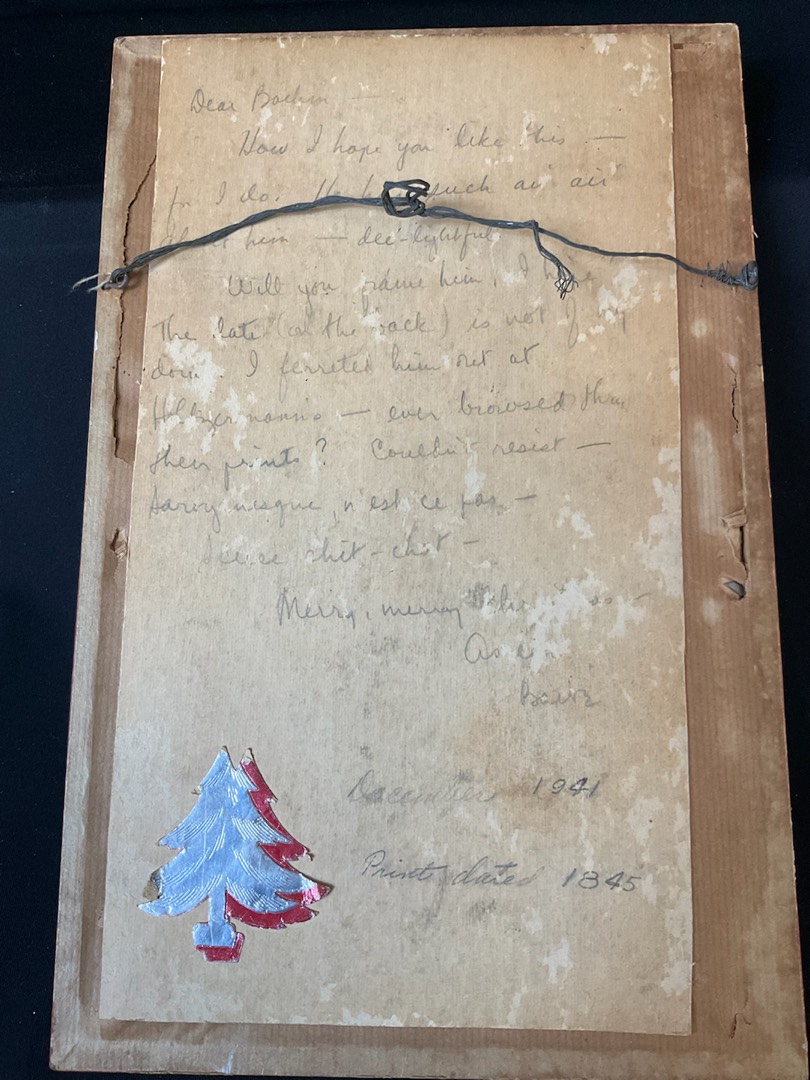 Dear
Now I hope you like this —
for I do. He such an air
him — dee-lightful
Will you frame him. I
The date (on the back) is not of my
doin. I ferreted him out at
Holtzermanns — ever browsed thru
their prints? Couldn't resist —
n'est ce pas —
chit-chat —
Merry, merry Christmas —
As

December 1941
Print dated 1845